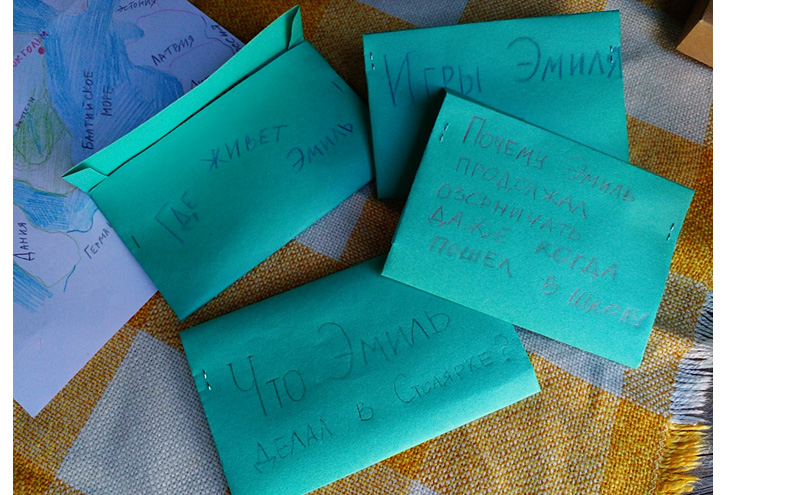 ЭСТОНИЯ
ЛАТВИЯ
БАЛТИЙСКОЕ
МОРЕ
ДАНИЯ
ГЕРМА
ГДЕ ЖИВЕТ
ЭМИЛЬ
ИГРЫ ЭМИЛЯ
ПОЧЕМУ ЭМИЛЬ
ПРОДОЛЖАЛ
ОЗОРНИЧАТЬ
ДАЖЕ КОГДА
ПОШЕЛ В ШКОЛУ
ЧТО ЭМИЛЬ
ДЕЛАЛ В СТОЛЯРКЕ?